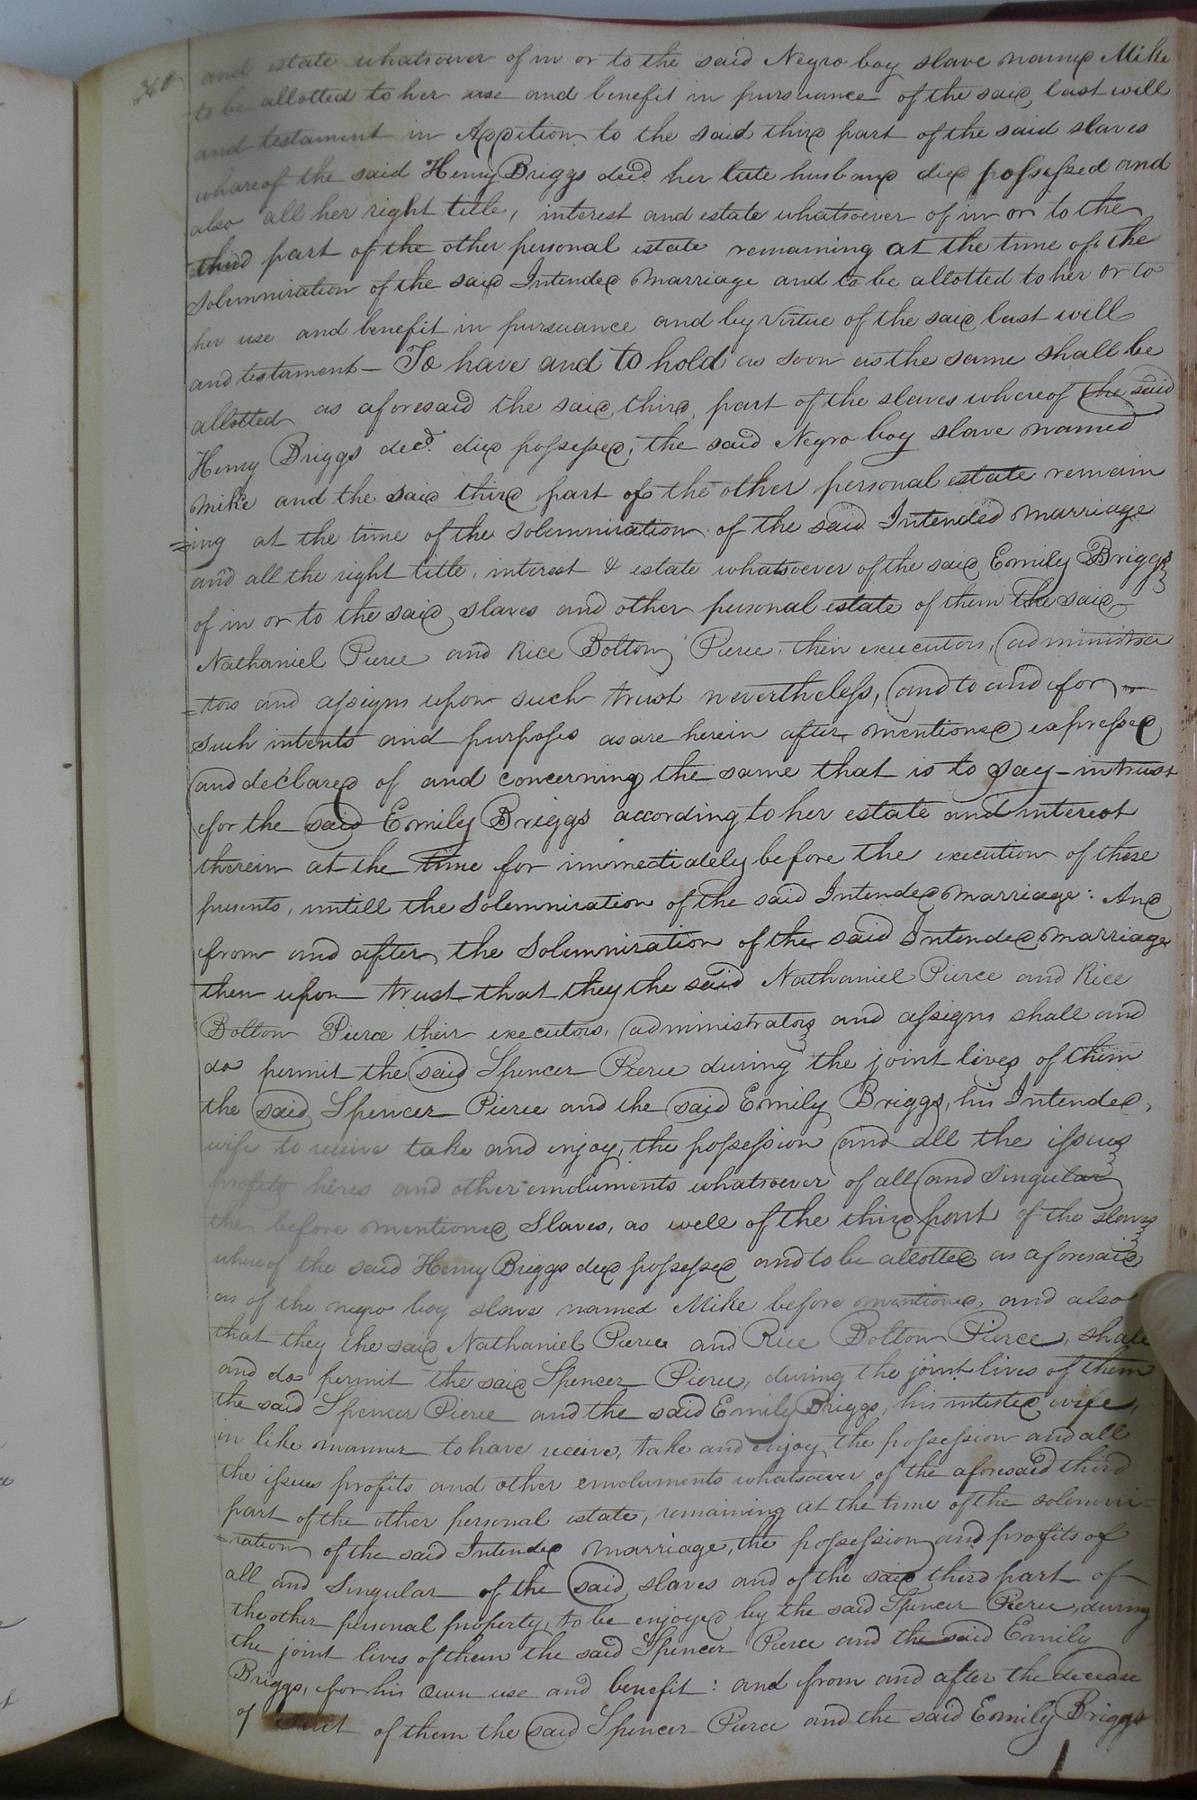 and estate whatsoever of in or to the said Negro boy slave named Mike
to be allotted to her use and benefit in pursuance of the said last will
and testament in Addition to the said third part of the said slaves
whareof the said Henry Briggs decd. her late husband died possessed and
also all her right title, interest and estate whatsoever of in or to the
third part of the other personal estate remaining at the time of the
Solemnization of the said Intended Marriage and to be allotted to her or to
her use and benefit in pursuance and by virtue of the said last will
and testament – To have and to hold as soon as the same shall be
allotted as aforesaid the said third part of the slaves whereof the said
Henry Briggs decd. died possessed, the said Negro boy slave named
Mike and the said third part of the other personal estate remain
=ing at the time of the Solemnization of the said Intended Marriage
and all the right title, interest & estate whatsoever of the said Emily Briggs
of in or to the said slaves and other personal estate of them the said
Nathaniel Pierce and Rice Bolton Pierce, their executors, administra
=tors and assigns upon such trust nevertheless, and to and for
such intents and purposes as are herein after mentioned expressed
and declared of and concerning the same that is to say – in trust
for the said Emily Briggs according to her estate and interest
therein at the time for immediately before the execution of these
presents, untill the Solemnization of the said Intended Marriage: And
from and after the Solemnization of the said Intended Marriage
then upon trust that they the said Nathaniel Pierce and Rice
Bolton Pierce their executors, administrators and assigns shall and
do permit the said Spencer Pierce during the joint lives of them
the said Spencer Pierce and the said Emily Briggs, his Intended,
wife to receive take and enjoy, the possession and all the issues
profits hires and other emoluments whatsoever of all and singular
the before mentioned Slaves, as well of the third part of the slaves
whereof the said Henry Briggs died possessed and to be allotted as aforesaid
as of the negro boy slave named Mike before mentioned, and also
that they the said Nathaniel Pierce and Rice Bolton Pierce, shall
and do permit the said Spencer Pierce, during the joint lives of them
the said Spencer Pierce and the said Emily Briggs, his wife,
in like manner to have receive, take and enjoy the possession and all
the issues profits and other emoluments whatsoever of the aforesaid third
part of the other personal estate, remaining at the time of the solemni=
=zation of the said Intended Marriage, the possession and profits of
all and Singular of the said slaves and of the said third part of
the other personal property, to be enjoyed by the said Spencer Pierce, during
the joint lives of them the said Spencer Pierce and the said Emily
Briggs, for his own use and benefit: and from and after the decease
of of them the said Spencer Pierce and the said Emily Briggs